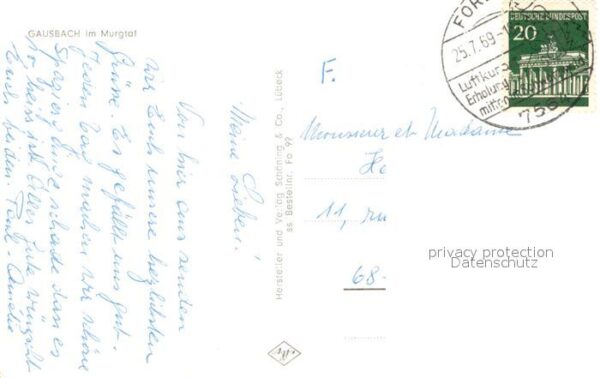 GAUSBACH im Murgtal
Meine Lieben!
Von hier aus senden
wir Euch unsere herzlichsten
Grüsse. Es gefällt uns gut.
Jeden Tag machen wir schöne
Spaziergänge schade dass es
so heiss ist. Alles Gute wünscht
Euch beiden. Paul - Amélie
Hersteller und Verlag Schöning & Co., Lübeck
ss Bestellnr. Fo 97
DEUTSCHE BUNDESPOST
20
25.7.69-1
Luftkur
Erholung
mitten
756
F.
Monsieur et Madame
He
11, ru
68-
privacy protection
Datenschutz